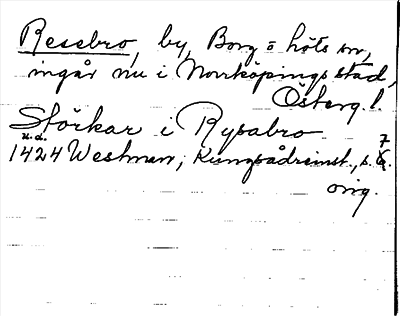 Resebro, by, Borg o. höts sn,
ingår nu i Norrköpings stad,
Österg. l.
Störkar i Rysabro
u.d.
1424 Westman, Kungsådreinst., s. 7
orig.